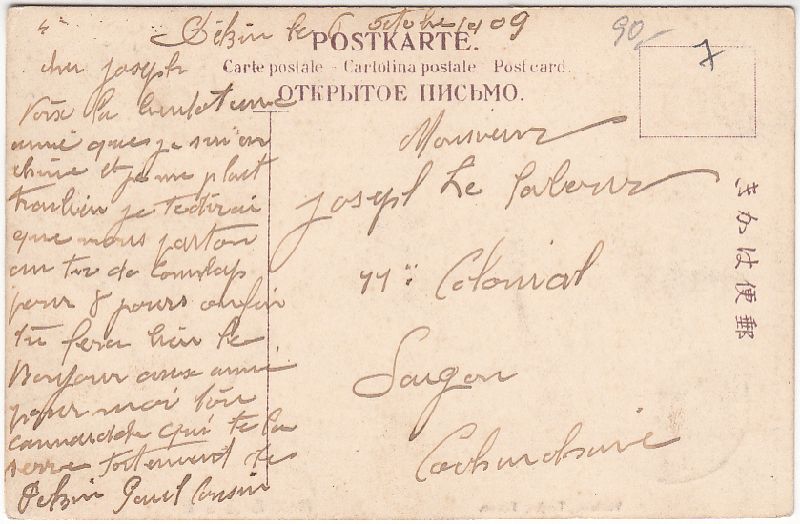 Pékin le 6 octobre 1909
90/-
7
POSTKARTE.
Carte postale - Cartolina postale - Post card.
ОТКРЫТОЕ ПИСЬМО.
cher joseph
Voix la
anné que je sui en
chine et je me plait
je te dirai
que nous parton
au tir de
pour 8 jours enfin
tu fera bien le
Bonjour aux ami
pour moi ton
camarade qui te la
serre fortement de
Pekin Paul
Monsieur
joseph Le
11e Colonial
Saigon
Cochinchine
きかは便郵